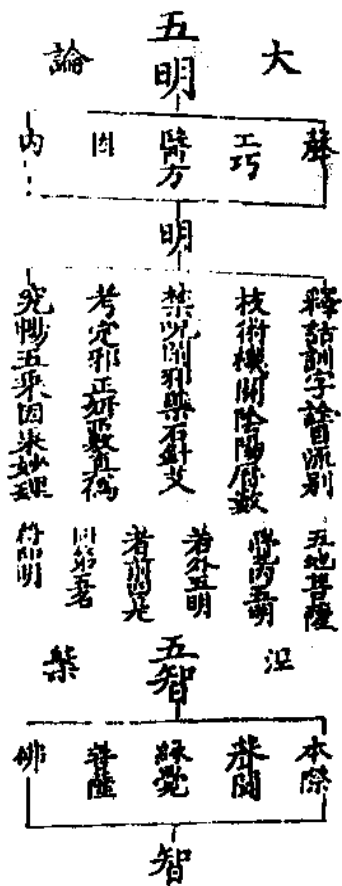 大五明論
聲
工巧
醫方
因
內
明
釋詁訓字詮目流別
技術機關陰陽曆數
禁呪閑邪藥石針艾
考定邪正研覈真偽
究暢五乘因果妙理
五地菩薩
內五明
若外五明
者前四是
同第五名
符印明
涅五智槃
本際
聲聞
緣覺
菩薩
佛
智